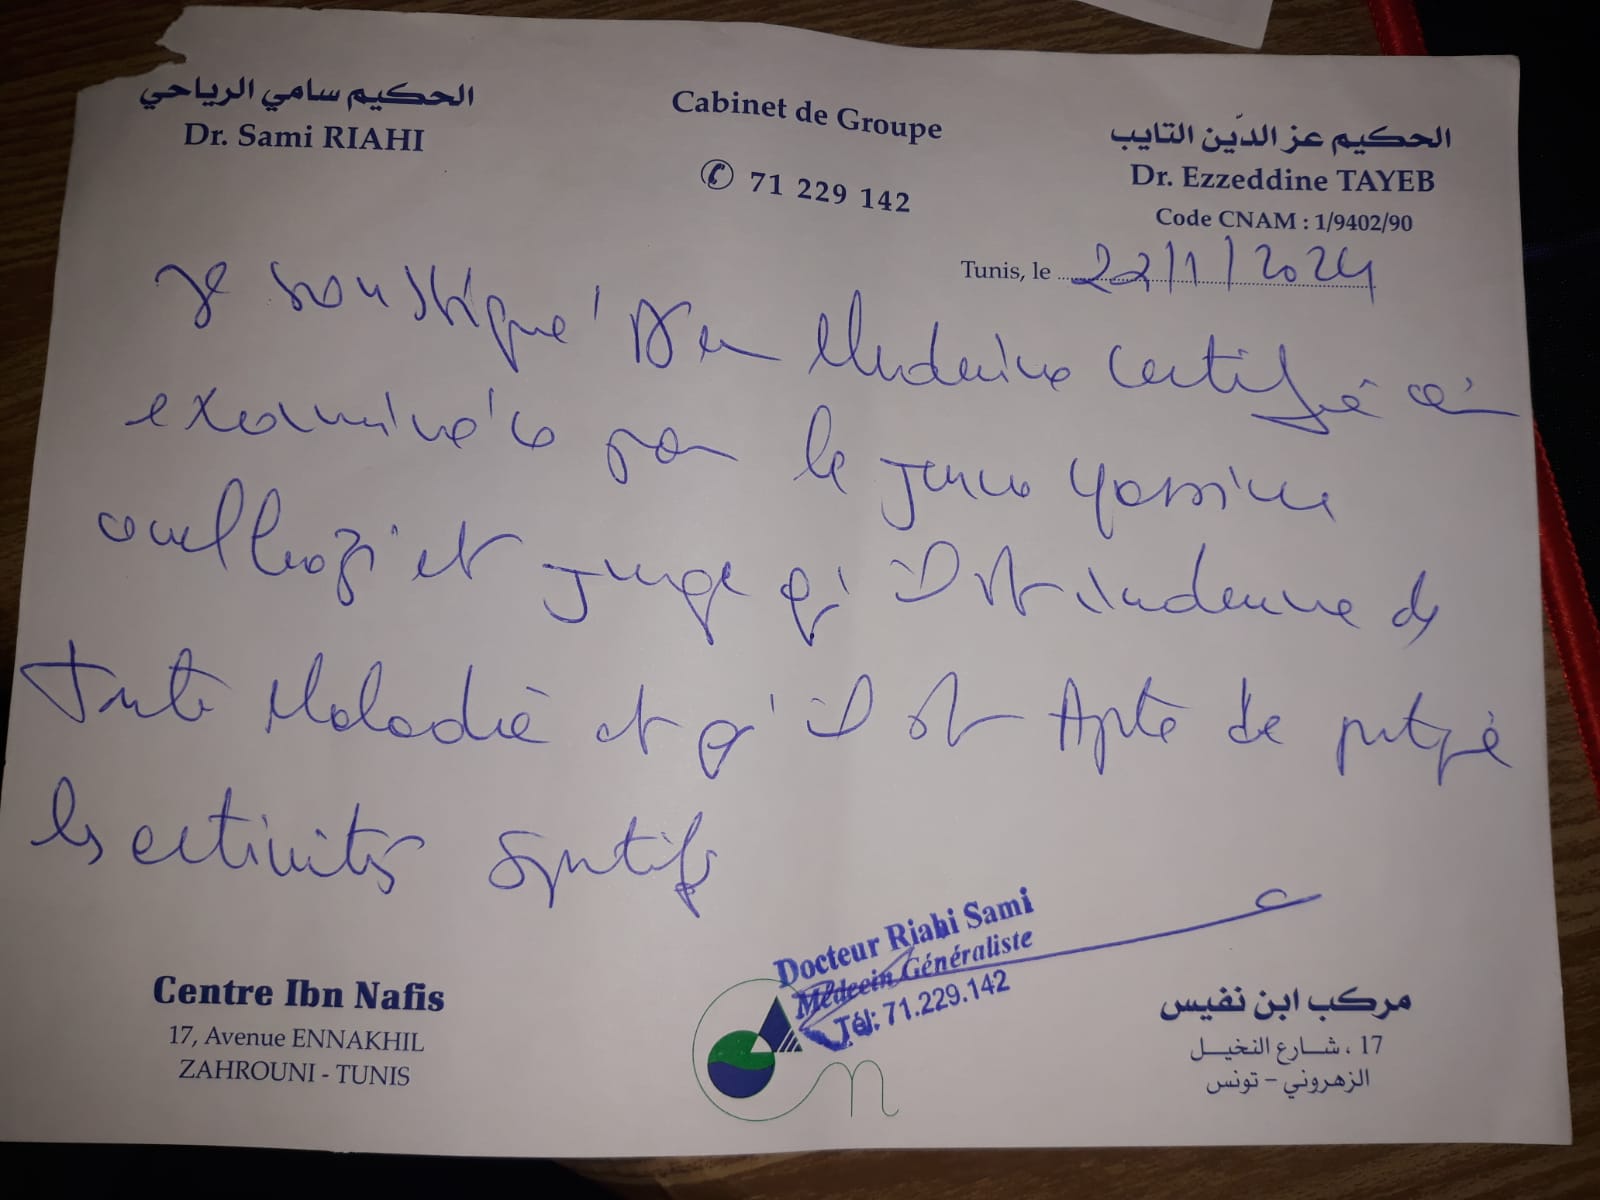 الحكيم سامي الرياحي
Dr. Sami RIAHI
Cabinet de Groupe
✆ 71 229 142
الحكيم عز الدّين التايب
Dr. Ezzeddine TAYEB
Code CNAM : 1/9402/90
Tunis, le 22/1/2024
Je soussigné Dr en Medecine certifie
examiné par le jeune Yassine
et juge qu'il est indemne de
toute Maladie et qu'il est Apte de
les activités sportifs
Docteur Riahi Sami
Médecin Généraliste
Tél: 71.229.142
Centre Ibn Nafis
17, Avenue ENNAKHIL
ZAHROUNI - TUNIS
مركب ابن نفيس
17 ، شارع النخيل
الزهروني – تونس